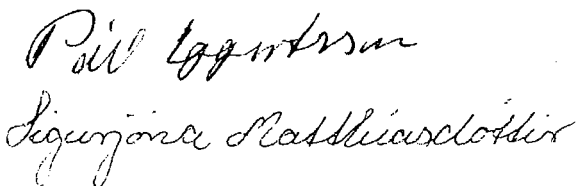 Páll Eggertsson
Sigurjóna Matthíasdóttir